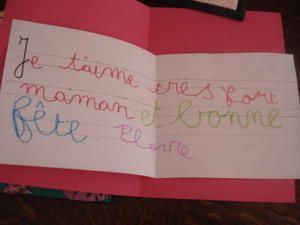 Je t'aime très fort
maman et bonne
fête. Elanre